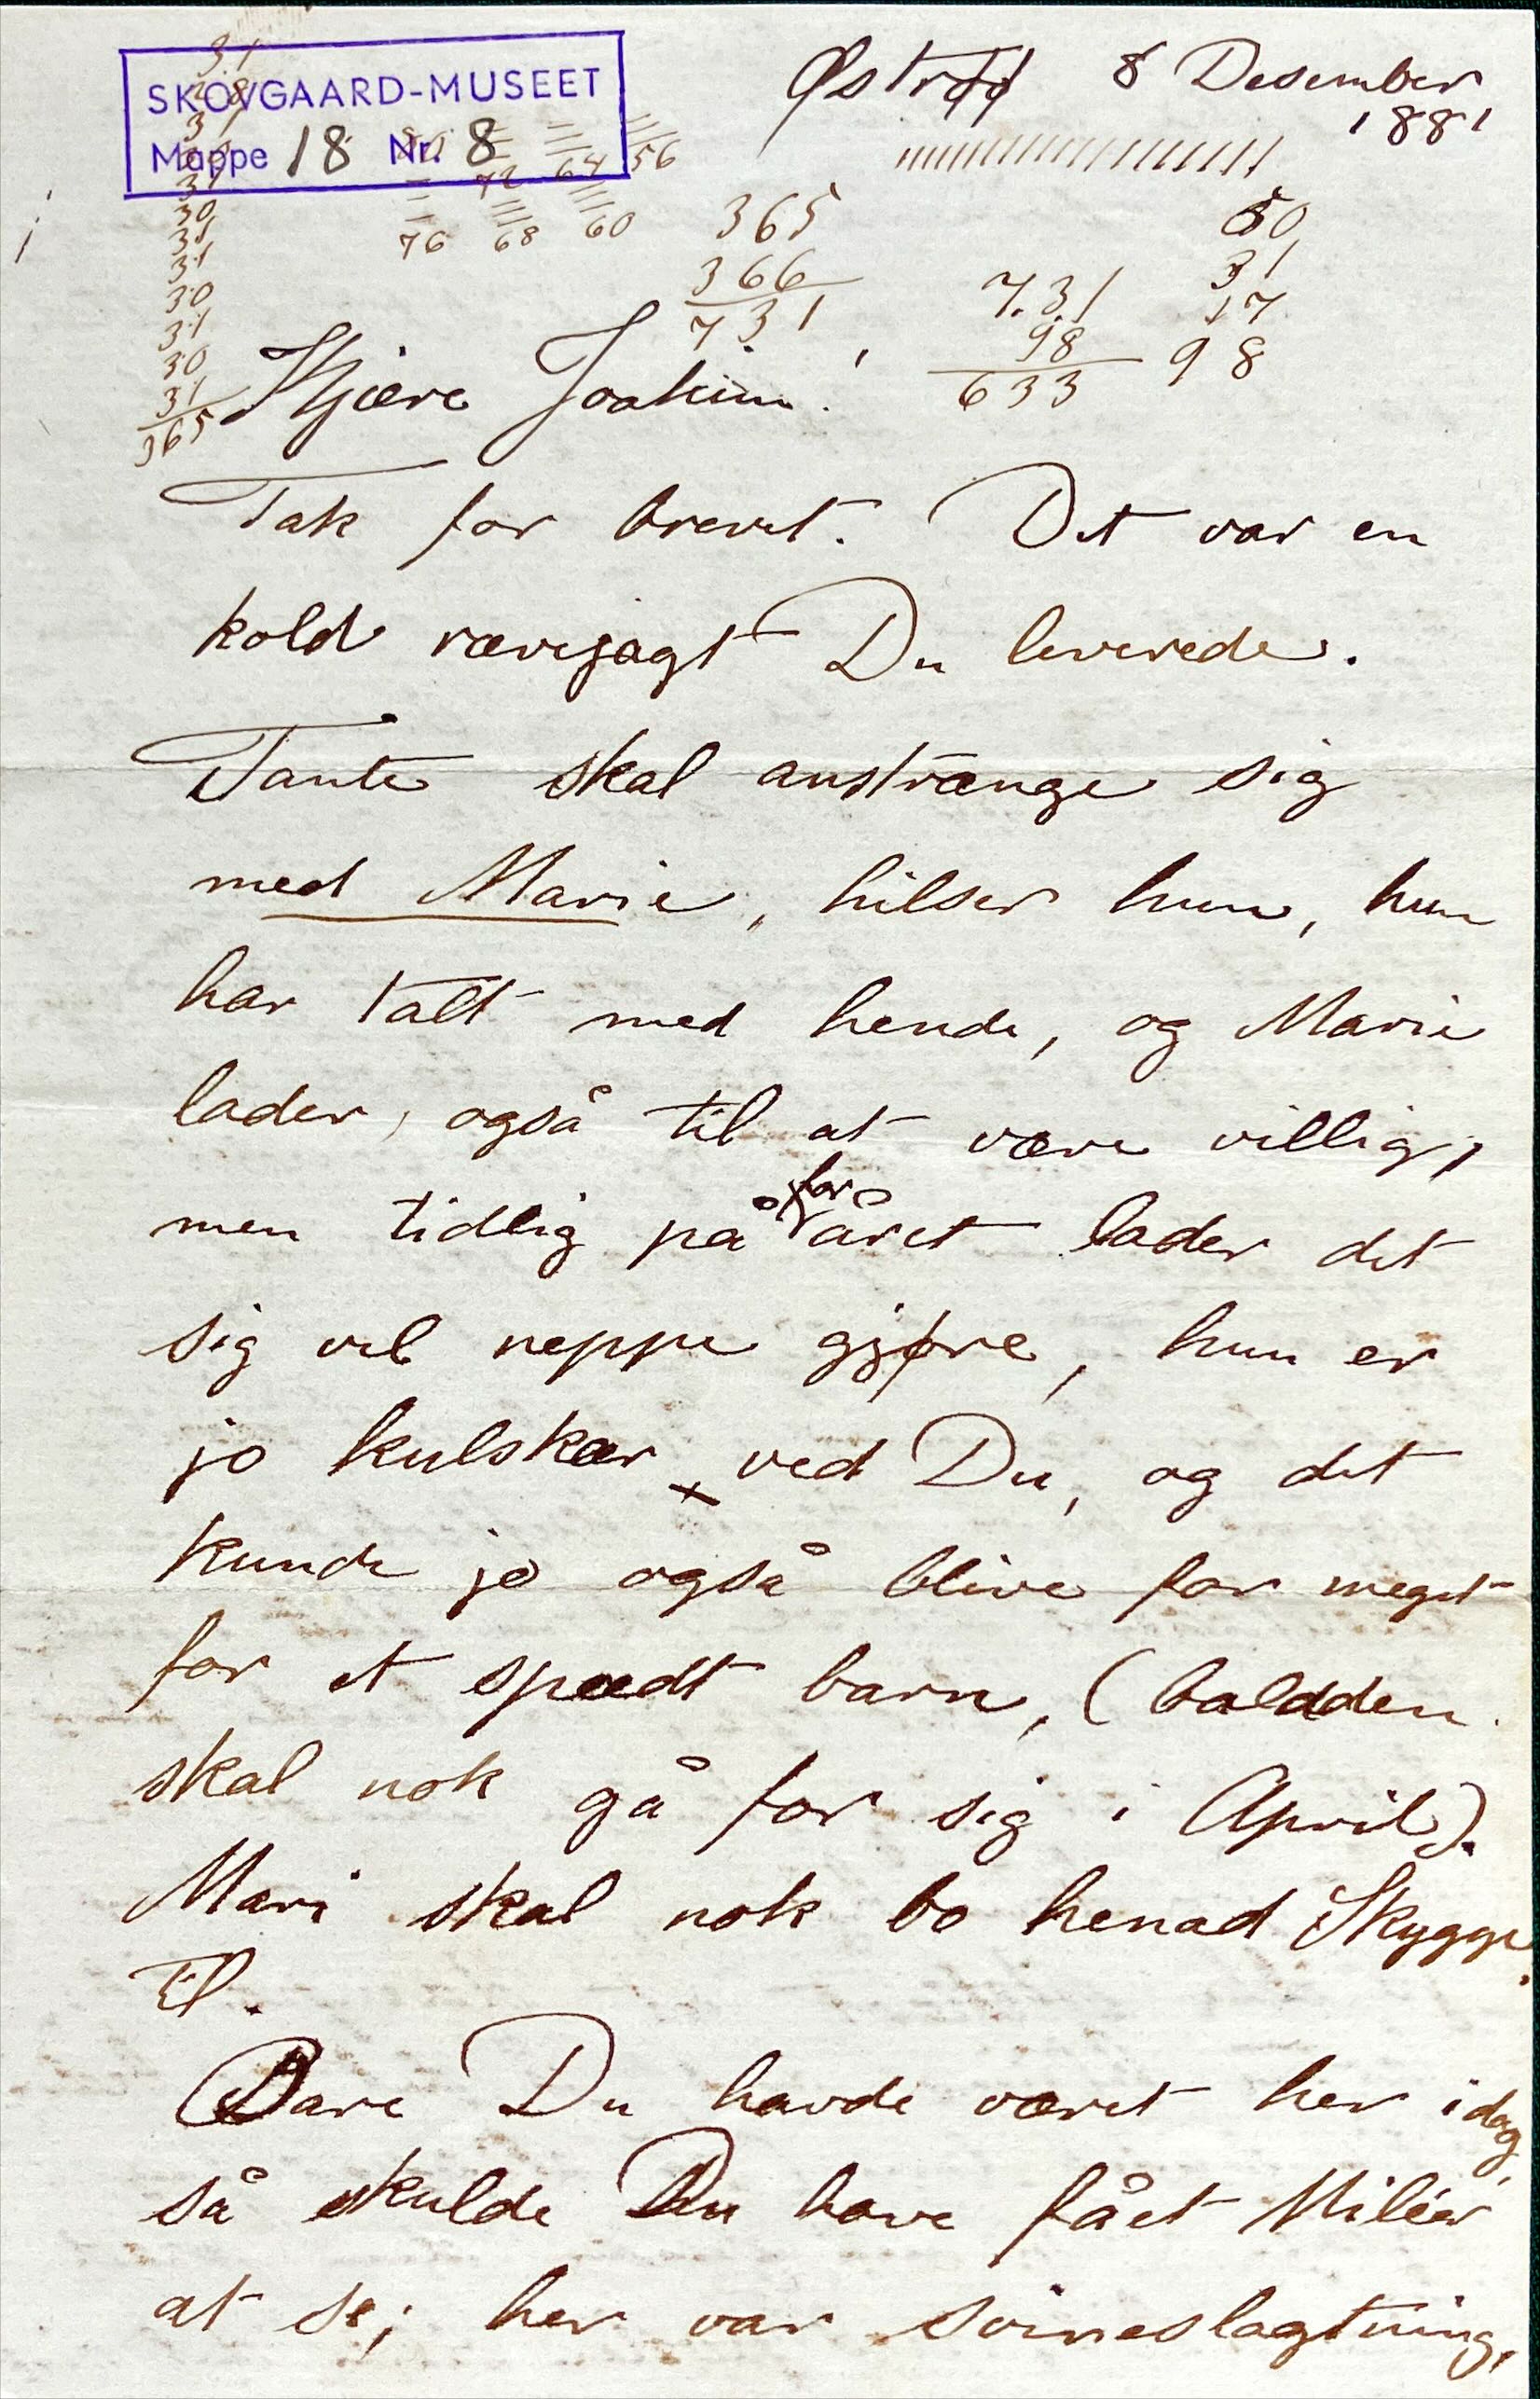 Østrød 8 Desember
1881
SKOVGAARD-MUSEET
Mappe 18 Nr. 8
31
28
31
30
31
30
31
31
30
31
30
31
365
80
76
72
68
64
60
56
365
366
731
731
98
633
50
31
17
98
Kjære Joakim!
Tak for brevet. Det var en
kold rævejagt Du leverede.
Tante skal anstrænge sig
med Marie, hilser hun, hun
har talt med hende, og Marie
lader også til at være villig,
men tidlig på foråret lader det
sig vel neppe gjøre, hun er
jo kulskær ved Du, og det
kunde jo også blive for meget
for et spædt barn, (baldden
skal nok gå for sig i April).
Mari skal nok bo henad Skygge
til.
Bare Du havde været her idag,
så skulde Du have fået Miliér
at se; her var svineslagtning,